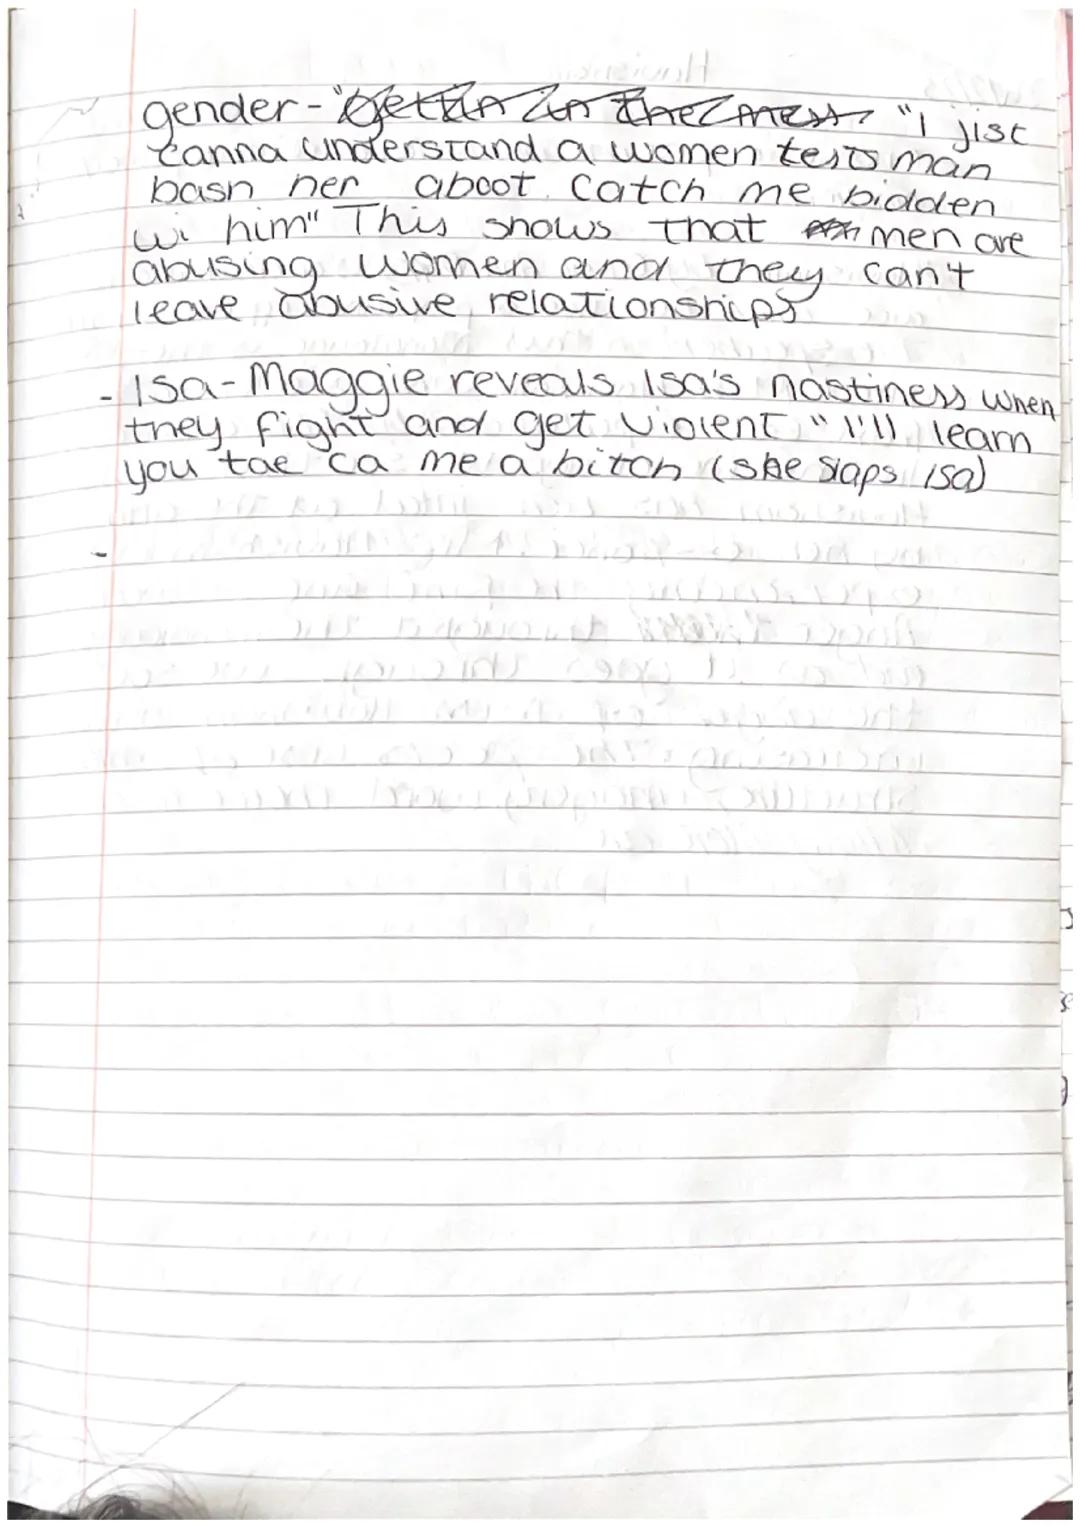 gender - "I jist
canna understand a women tests man
bash her aboot. Catch me bidden
wi him" This shows that men are
abusing women and they can't
leave abusive relationships
- Isa - Maggie reveals Isa's nastiness when
they fight and get violent "I'll learn
you tae ca me a bitch (she slaps isa)
-